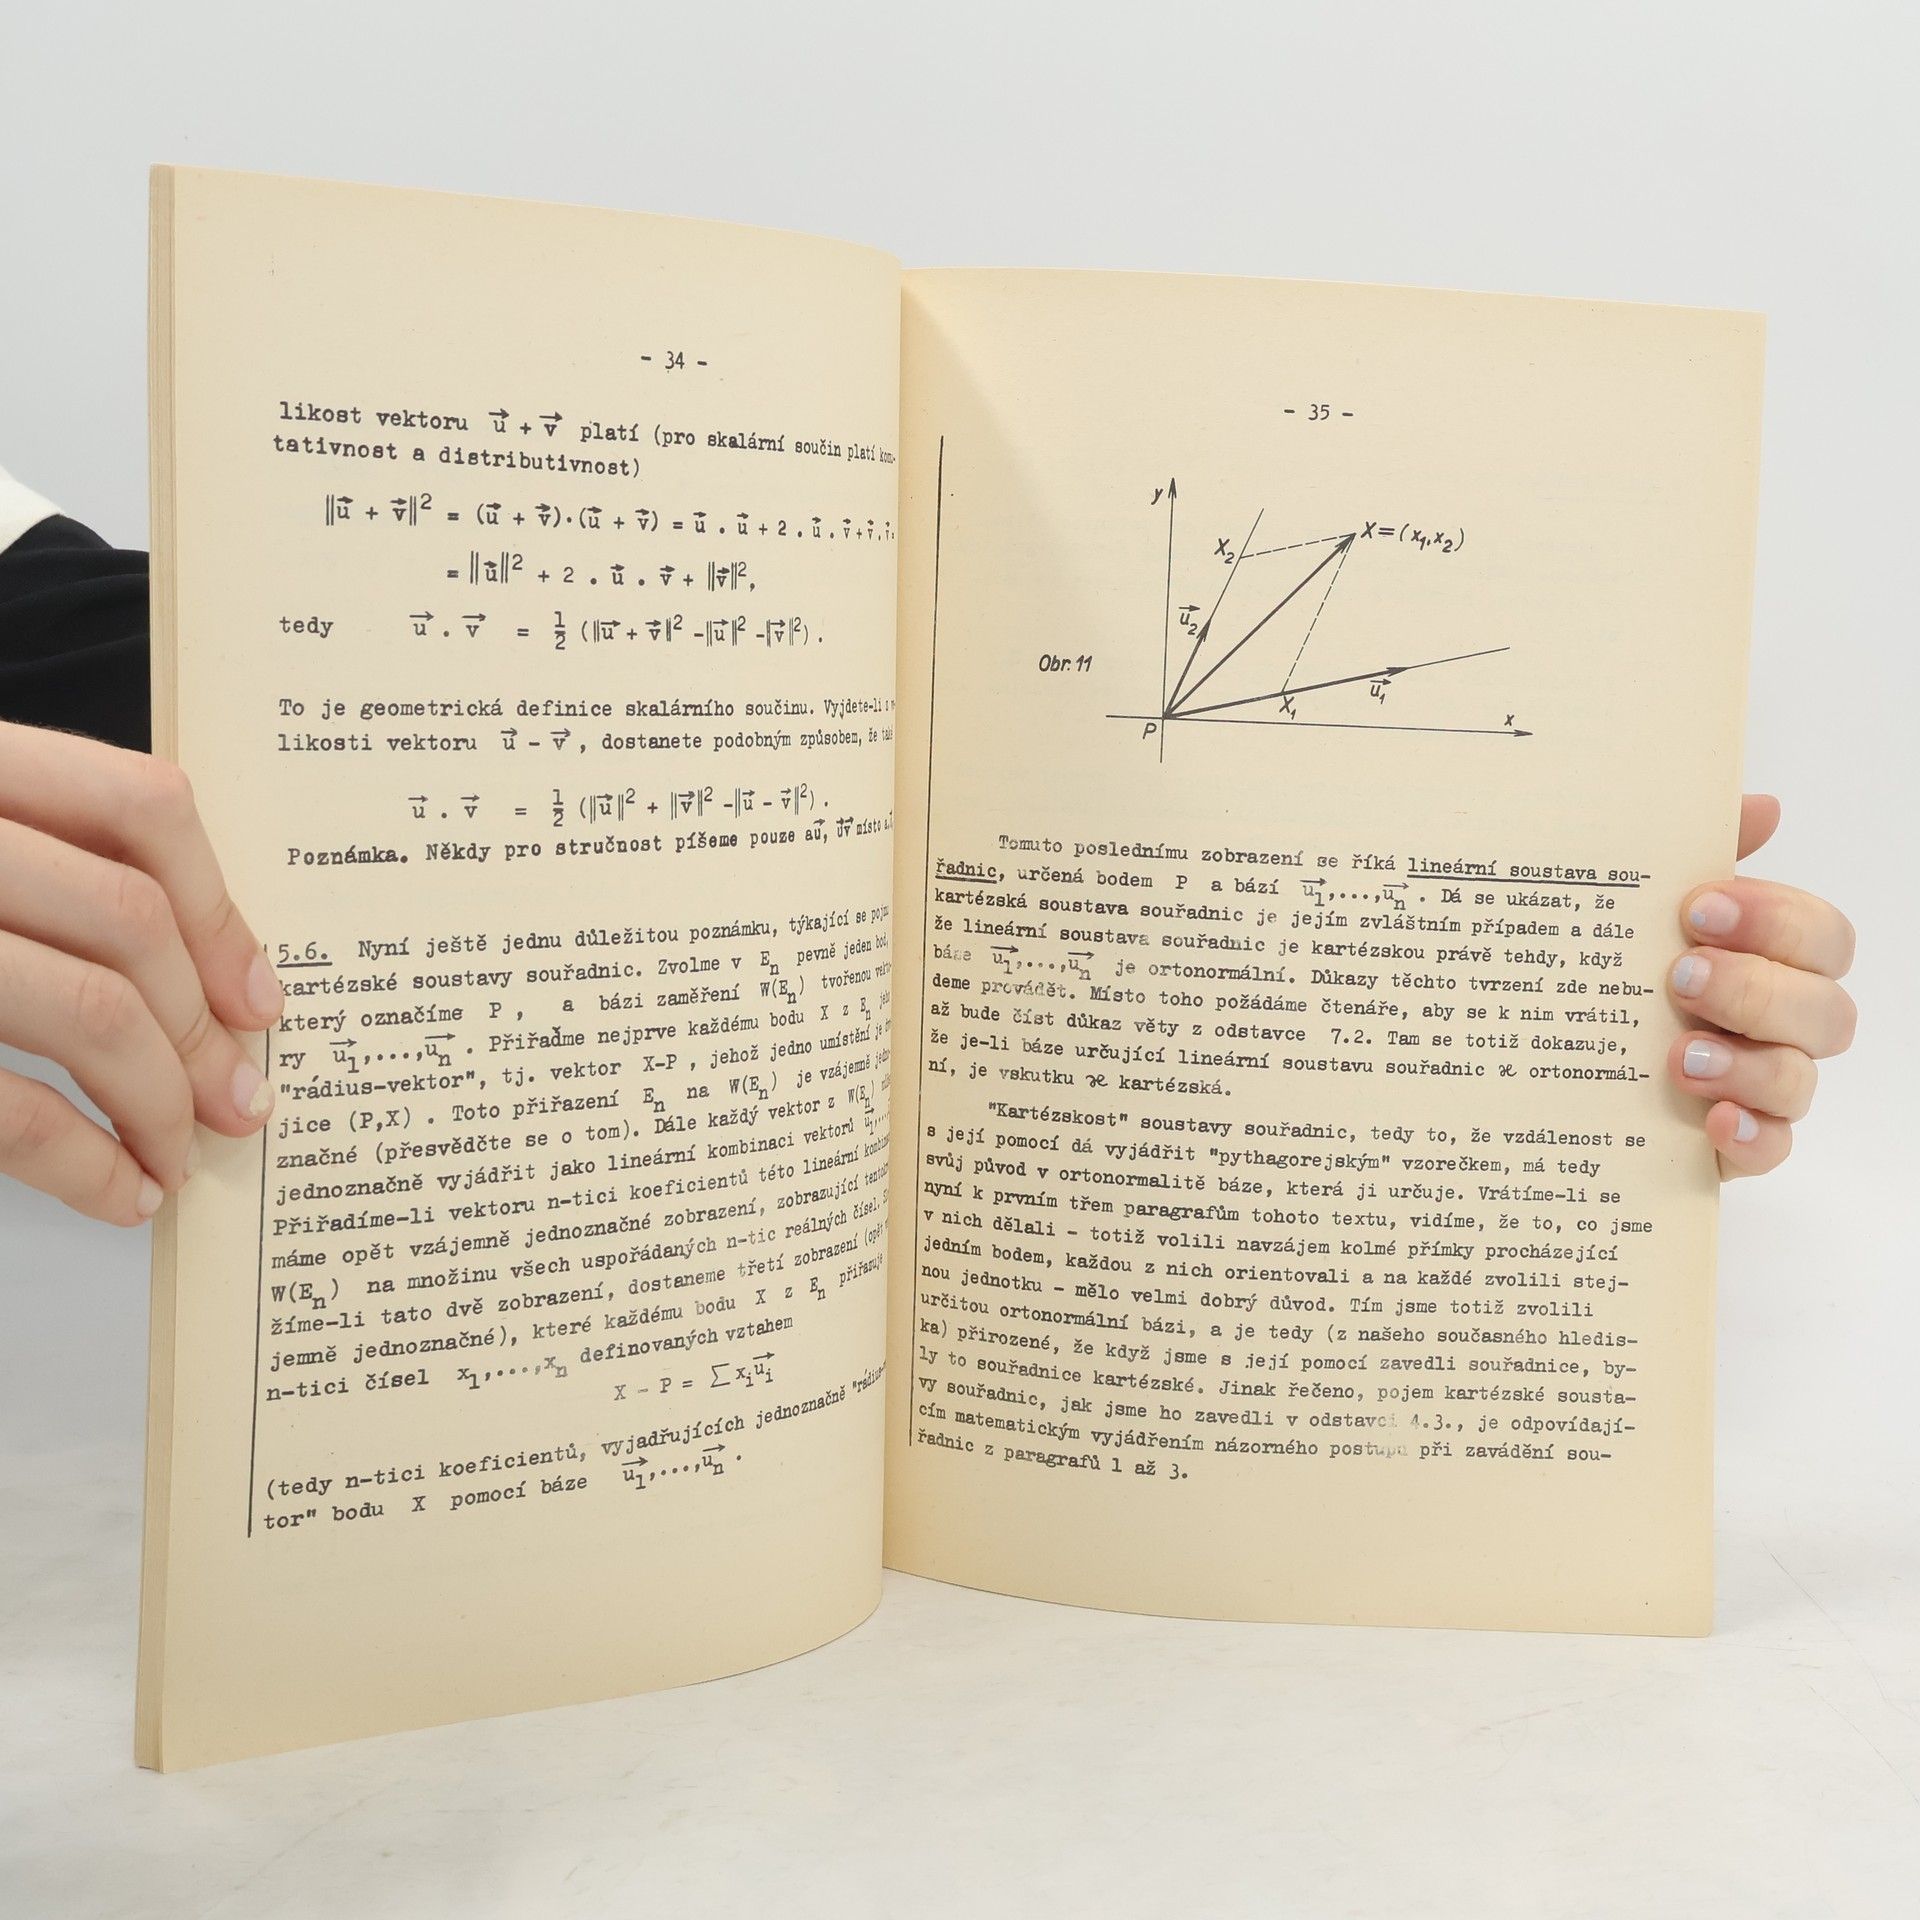 - 34 -
likost vektoru u⃗ + v⃗ platí (pro skalární součin platí kom-
tativnost a distributivnost)
‖u⃗ + v⃗‖² = (u⃗ + v⃗)·(u⃗ + v⃗) = u⃗ . u⃗ + 2 . u⃗ . v⃗ + v⃗ . v⃗ =
= ‖u⃗‖² + 2 . u⃗ . v⃗ + ‖v⃗‖²,
tedy u⃗ . v⃗ = 1/2 (‖u⃗ + v⃗‖² -‖u⃗‖² -‖v⃗‖²) .
To je geometrická definice skalárního součinu. Vyjdete-li z
likosti vektoru u⃗ - v⃗ , dostanete podobným způsobem, že
u⃗ . v⃗ = 1/2 (‖u⃗‖² + ‖v⃗‖² -‖u⃗ - v⃗‖²) .
Poznámka. Někdy pro stručnost píšeme pouze au⃗, u⃗v⃗ místo
5.6. Nyní ještě jednu důležitou poznámku, týkající se
kartézské soustavy souřadnic. Zvolme v Eₙ pevně jeden bod,
který označíme P , a bázi zaměření W(Eₙ) tvořenou
ry u⃗₁,...,u⃗ₙ . Přiřaďme nejprve každému bodu X z Eₙ
"rádius-vektor", tj. vektor X-P , jehož jedno umístění je
jice (P,X) . Toto přiřazení Eₙ na W(Eₙ) je vzájemně
značné (přesvědčte se o tom). Dále každý vektor z W(Eₙ)
jednoznačně vyjádřit jako lineární kombinaci vektorů u⃗₁,...
Přiřadíme-li vektoru n-tici koeficientů této lineární
máme opět vzájemně jednoznačné zobrazení, zobrazující
W(Eₙ) na množinu všech uspořádaných n-tic reálných čísel.
žíme-li tato dvě zobrazení, dostaneme třetí zobrazení (opět
jemně jednoznačné), které každému bodu X z Eₙ přiřazuje
n-tici čísel x₁,...,xₙ definovaných vztahem
X - P = ∑ xᵢu⃗ᵢ
(tedy n-tici koeficientů, vyjadřujících jednoznačně
tor" bodu X pomocí báze u⃗₁,...,u⃗ₙ .
- 35 -
y
X₂
X=(x₁,x₂)
u⃗₂
Obr. 11
u⃗₁
X₁
x
P
Tomuto poslednímu zobrazení se říká lineární soustava sou-
řadnic, určená bodem P a bází u⃗₁,...,u⃗ₙ . Dá se ukázat, že
kartézská soustava souřadnic je jejím zvláštním případem a dále
že lineární soustava souřadnic je kartézskou právě tehdy, když
báze u⃗₁,...,u⃗ₙ je ortonormální. Důkazy těchto tvrzení zde nebu-
deme provádět. Místo toho požádáme čtenáře, aby se k nim vrátil,
až bude číst důkaz věty z odstavce 7.2. Tam se totiž dokazuje,
že je-li báze určující lineární soustavu souřadnic ϰ ortonormál-
ní, je vskutku ϰ kartézská.
"Kartézskost" soustavy souřadnic, tedy to, že vzdálenost se
s její pomocí dá vyjádřit "pythagorejským" vzorečkem, má tedy
svůj původ v ortonormalitě báze, která ji určuje. Vrátíme-li se
nyní k prvním třem paragrafům tohoto textu, vidíme, že to, co jsme
v nich dělali - totiž volili navzájem kolmé přímky procházející
jedním bodem, každou z nich orientovali a na každé zvolili stej-
nou jednotku - mělo velmi dobrý důvod. Tím jsme totiž zvolili
určitou ortonormální bázi, a je tedy (z našeho současného hledis-
ka) přirozené, že když jsme s její pomocí zavedli souřadnice, by-
ly to souřadnice kartézské. Jinak řečeno, pojem kartézské sousta-
vy souřadnic, jak jsme ho zavedli v odstavci 4.3., je odpovídají-
cím matematickým vyjádřením názorného postupu při zavádění sou-
řadnic z paragrafů 1 až 3.